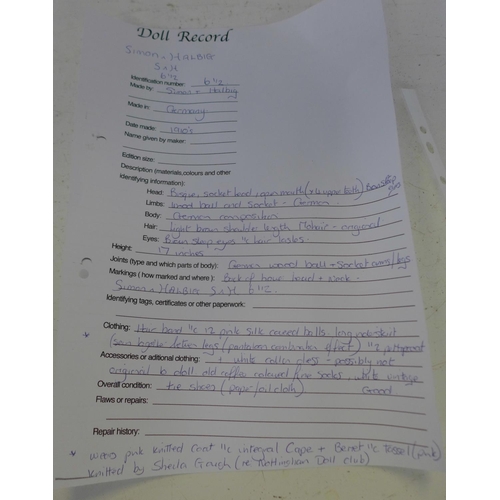 Doll Record
Simon & HALBIG
S & H
6 1/2
Identification number: 6 1/2
Made by: Simon & Halbig
Made in: Germany
Date made: 1910's
Name given by maker:
Edition size:
Description (materials,colours and other
identifying information):
Head: Bisque, socket head, open mouth (x 4 upper teeth)
Limbs: wood ball and socket - German.
Body: German composition
Hair: light brown shoulder length Mohair - original
Eyes: Brown sleep eyes "c hair lashes.
Height: 17 inches
Joints (type and which parts of body): German wood ball + Socket arms/legs
Markings ( how marked and where ): Back of head + neck.
Simon & HALBIG S & H 6 1/2.
Identifying tags, certificates or other paperwork:
* Clothing: Hair band "c 12 pink silk covered balls. long
(sewn together between legs / pantaloon combination effect)
Accessories or aditional clothing: + white cotton dress - possibly not
original to doll old coloured fine socks, white vintage
Overall condition: tie shoes (paper/oil cloth) Good
Flaws or repairs:
Repair history:
* wears pink knitted coat "c integral Cape + Beret "c Tassel (pink)
knitted by Sheila (re Nottingham Doll club)